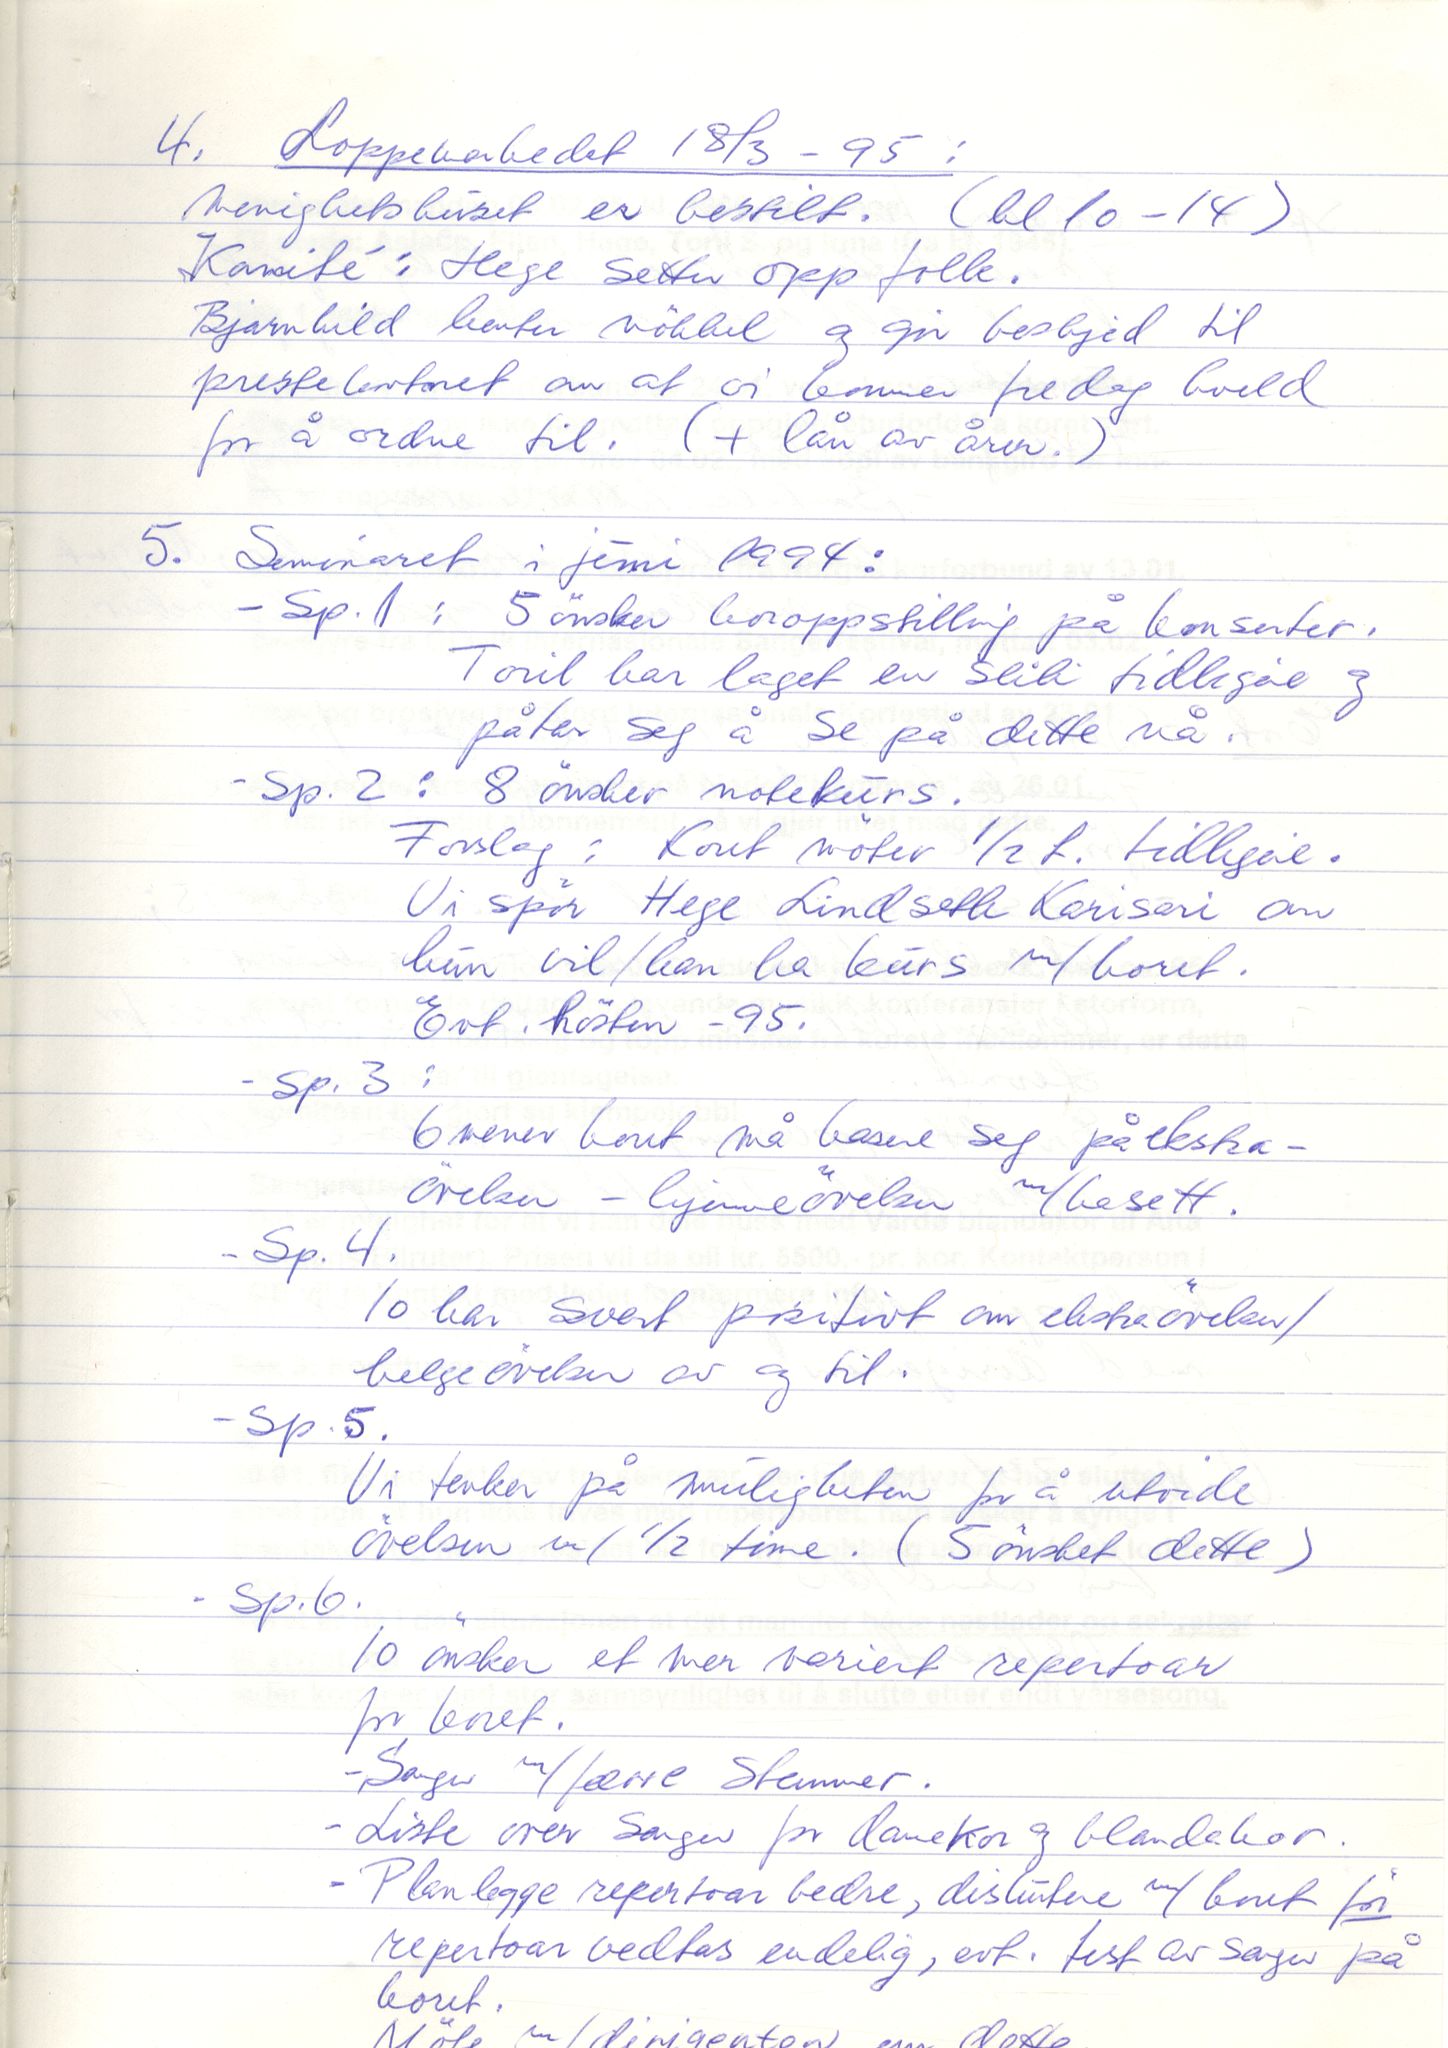 4. Loppemarkedet 18/3 - 95 :
Menighetshuset er bestilt. (kl 10 - 14)
Komité : Hege setter opp folk.
Bjørnhild henter nökkel og gir beskjed til
prestekontoret om at vi kommer fredag kveld
for å ordne til. (+ lån av årer.)
5. Seminaret i juni 1994 :
- Sp. 1 : 5 önsker koroppstilling på konserter.
Toril har laget en slik tidligere og
påtar seg å se på dette nå.
- Sp. 2 : 8 önsker notekurs.
Forslag : Koret möter 1/2 t. tidligere.
Vi spör Hege Lindseth Karisari om
hun vil/kan ha kurs m/koret.
Evt. hösten - 95.
- Sp. 3 :
6 mener koret må basere seg på ekstra-
övelser - hjemmeövelser m/kasett.
- Sp. 4.
10 har svart positivt om ekstraövelser/
helgeövelser av og til.
- Sp. 5.
Vi tenker på muligheten for å utvide
övelsen m/ 1/2 time. (5 önsket dette)
- Sp. 6.
10 önsker et mer variert repertoar
for koret.
- Sanger m/færre stemmer.
- Liste over sanger for damekor og blandakor.
- Planlegge repertoar bedre, diskutere m/ koret för
repertoar vedtas endelig, evt. test av sanger på
koret.
Möte m/dirigenten om dette.